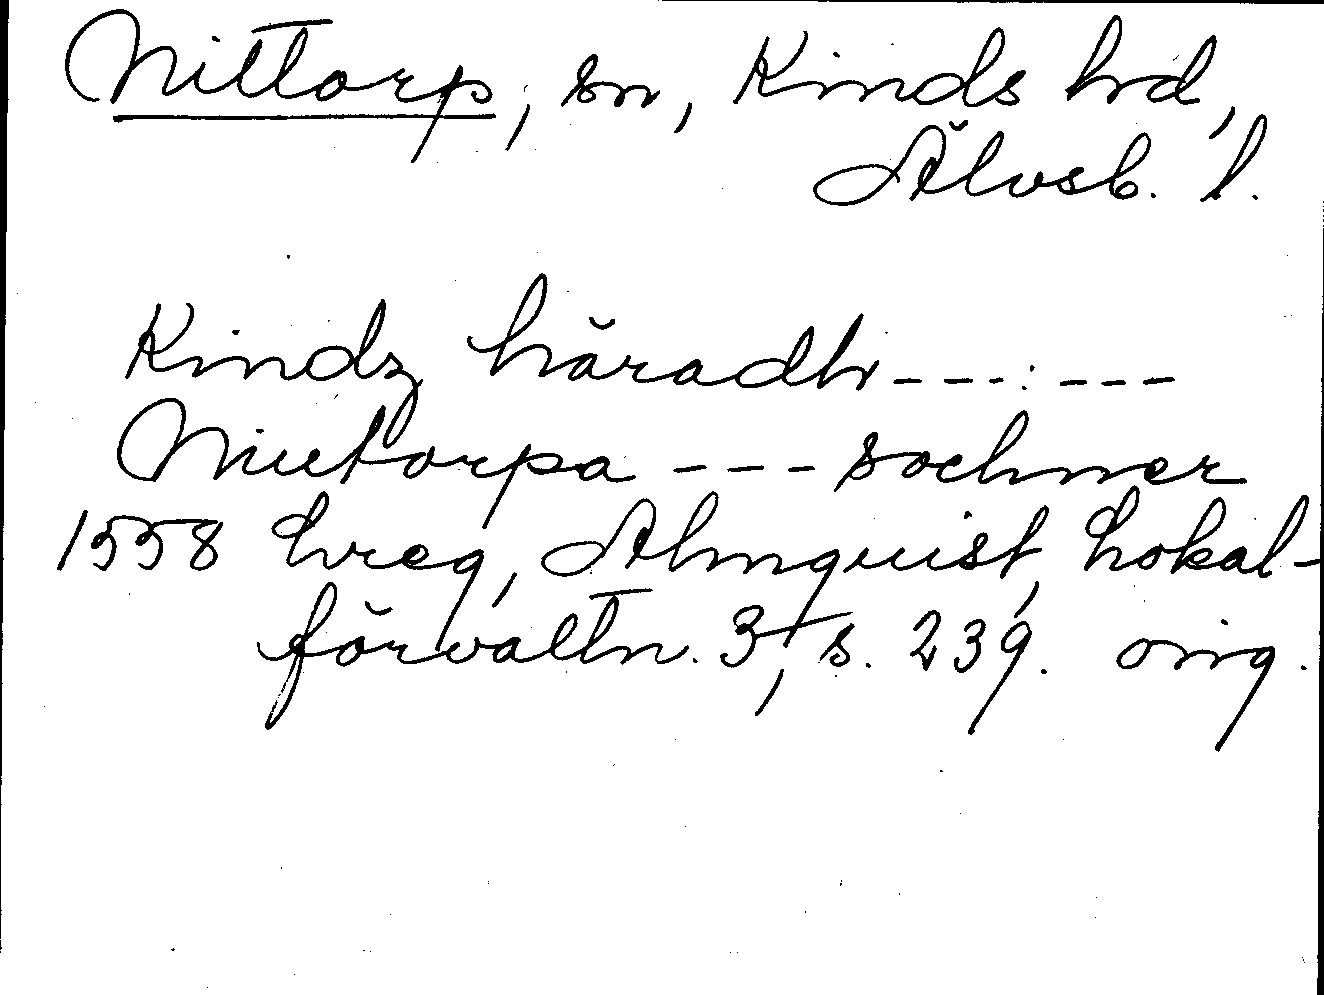 Nittorp, sn, Kinds hd,
Älvsb. l.
Kindz häradh --- : ---
Niutorpa --- sochner
1558 hreg, Almquist, Lokal-
förvaltn. 3, s. 239. orig.